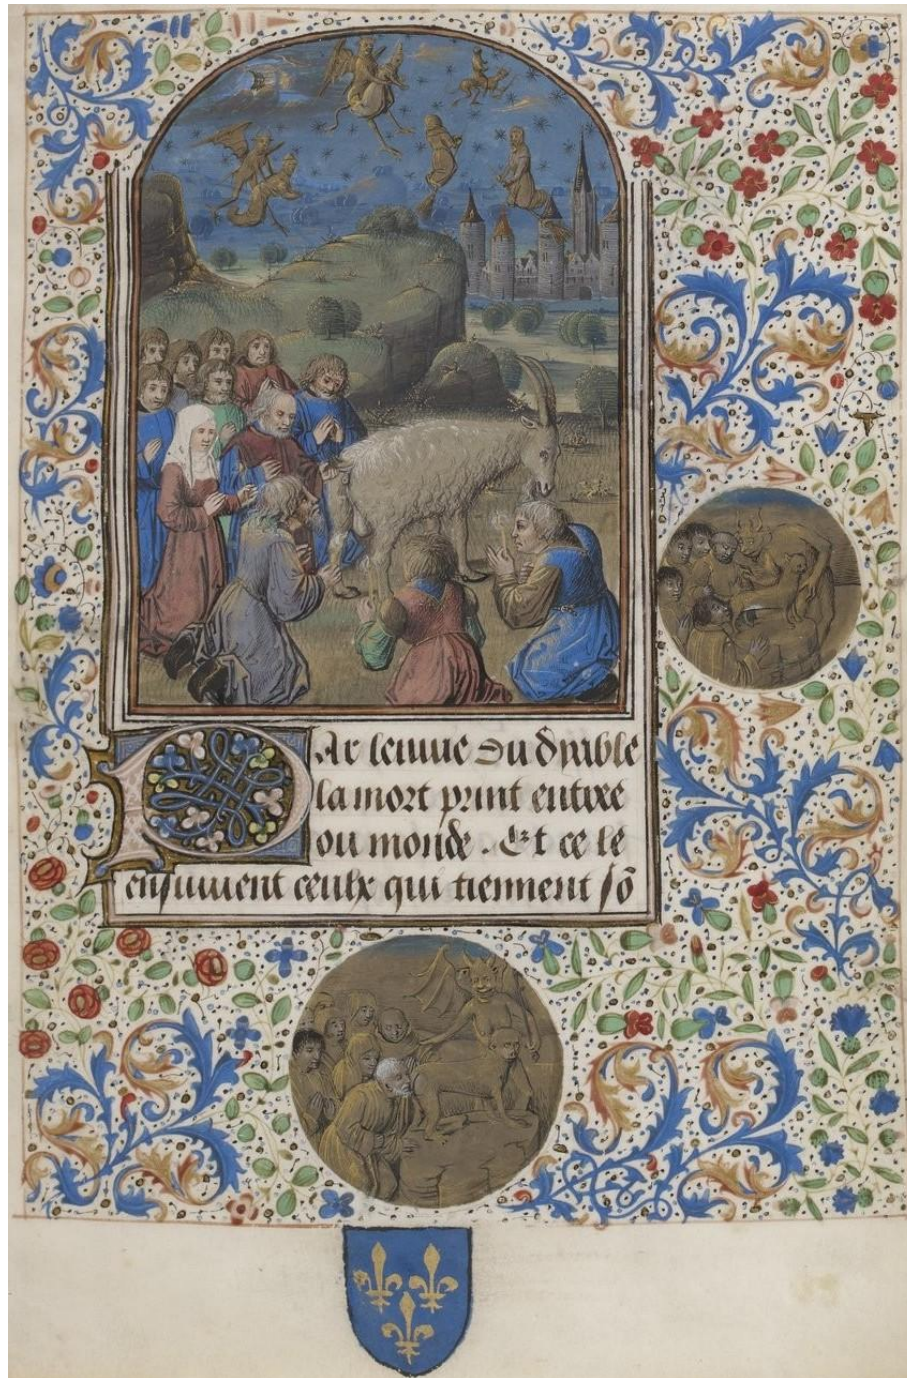 PAr lenuie du dyable
la mort print entree
ou monde . Et ce le
ensuiuent ceulx qui tiennent sõ